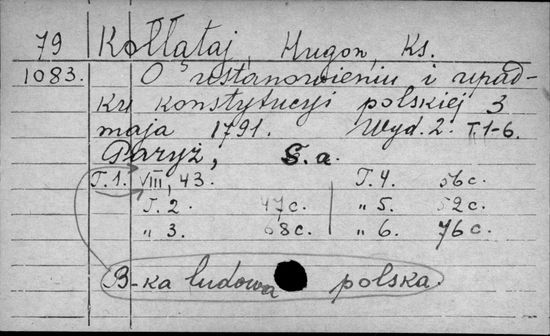 79 Kołłątaj, Hugon, Ks.
1083. O ustanowieniu i upad-
ku konstytucyi polskiej 3
maja 1791. Wyd. 2. T. 1-6.
Paryż, S. a.
T. 1. VIII, 43. T. 4. 56 c.
T. 2. 47 c. " 5. 52 c.
" 3. 68 c. " 6. 76 c.
B-ka ludowa polska.